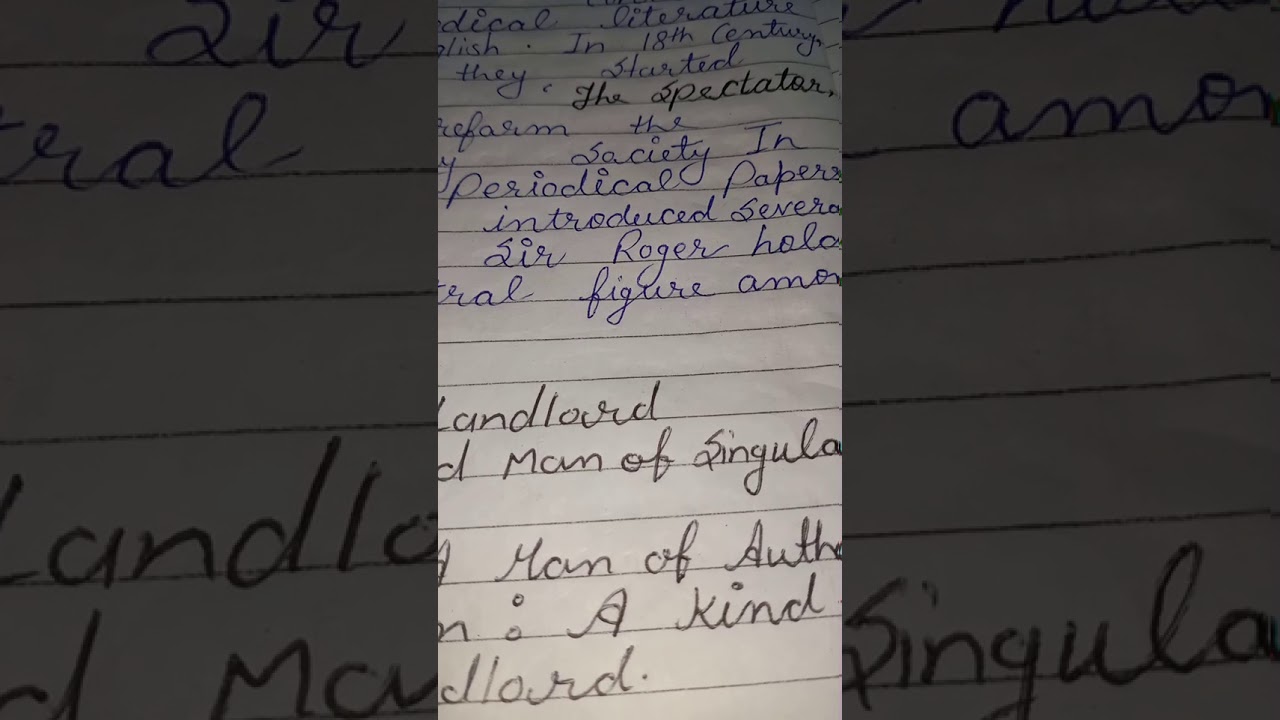 dical literature
lish. In 18th Century,
they. Started
The Spectator,
refarm the
y Saciety In
Periodical Papers
introduced Severa
Sir Roger hold
ral figure amon
Landlourd
d Man of Singula
A Man of Autho
n : A Kind
dlard.